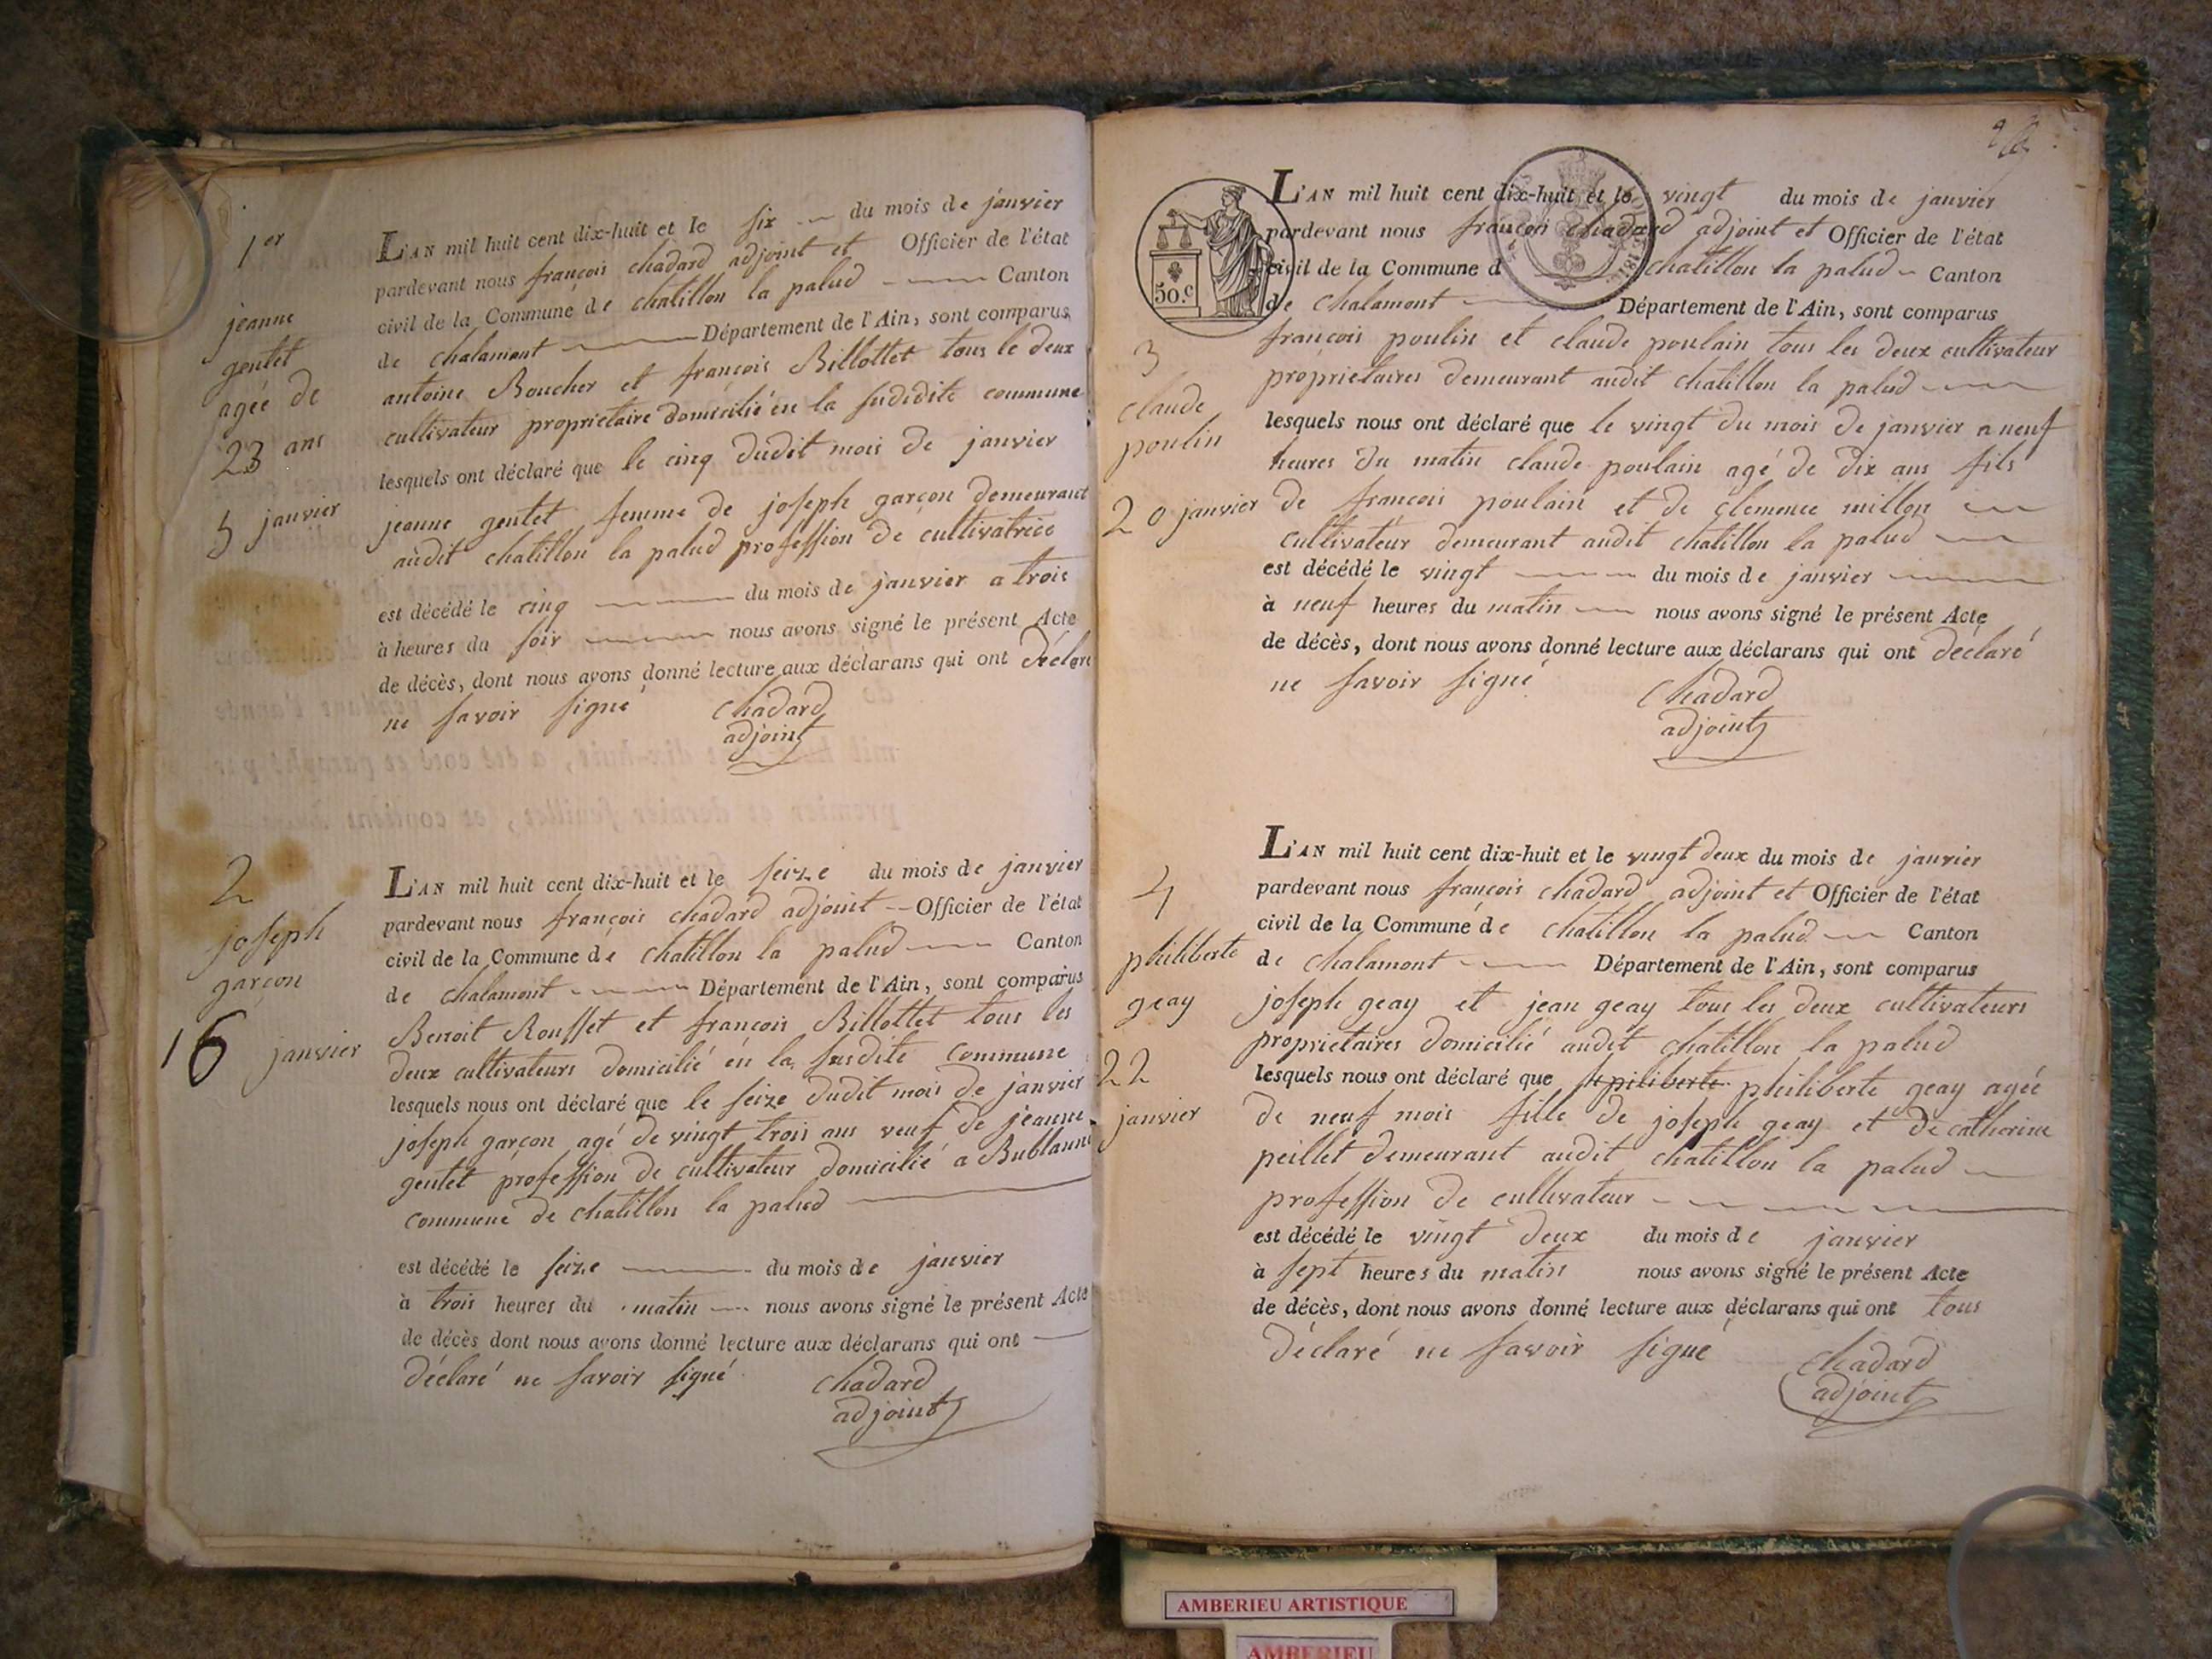 1er
jeanne
gentet
agée de
23 ans
5 janvier
L'AN mil huit cent dix-huit et le six du mois de janvier
pardevant nous françois chadard adjoint et Officier de l'état
civil de la Commune de chatillon la palud Canton
de chalamont Département de l'Ain, sont comparus
antoine Boucher et françois Billottet tous le deux
cultivateur proprietaire domicilié en la sudidite commune
lesquels ont déclaré que le cinq dudit mois de janvier
jeanne gentet femme de joseph garçon demeurant
audit chatillon la palud profession de cultivatrice
est décédé le cinq du mois de janvier a trois
à heures du soir nous avons signé le présent Acte
de décès, dont nous avons donné lecture aux déclarans qui ont déclaré
ne savoir signé chadard
adjoint
2
joseph
garçon
16 janvier
L'AN mil huit cent dix-huit et le seize du mois de janvier
pardevant nous françois chadard adjoint Officier de l'état
civil de la Commune de chatillon la palud Canton
de chalamont Département de l'Ain, sont comparus
Benoit Rousset et françois Billottet tous les
deux cultivateurs domicilié en la susdite commune
lesquels nous ont déclaré que le seize dudit mois de janvier
joseph garçon agé de vingt trois ans veuf de jeanne
gentet profession de cultivateur domicilié a Bublanne
commune de chatillon la palud
est décédé le seize du mois de janvier
à trois heures du matin nous avons signé le présent Acte
de décès dont nous avons donné lecture aux déclarans qui ont
déclaré ne savoir signé chadard
adjoint
50.c
3
claude
poulin
20 janvier
L'AN mil huit cent dix-huit et le vingt du mois de janvier
pardevant nous françois chadard adjoint et Officier de l'état
civil de la Commune d chatillon la palud Canton
de chalamont Département de l'Ain, sont comparus
françois poulin et claude poulain tous les deux cultivateur
proprietaires demeurant audit chatillon la palud
lesquels nous ont déclaré que le vingt du mois de janvier a neuf
heures du matin claude poulain agé de dix ans fils
de françois poulain et de clemence millon
cultivateur demeurant audit chatillon la palud
est décédé le vingt du mois de janvier
à neuf heures du matin nous avons signé le présent Acte
de décès, dont nous avons donné lecture aux déclarans qui ont déclaré
ne savoir signé chadard
adjoint
4
philiberte
geay
22
janvier
L'AN mil huit cent dix-huit et le vingt deux du mois de janvier
pardevant nous françois chadard adjoint et Officier de l'état
civil de la Commune de chatillon la palud Canton
de chalamont Département de l'Ain, sont comparus
joseph geay et jean geay tous les deux cultivateurs
proprietaires domicilié audit chatillon la palud
lesquels nous ont déclaré que philiberte geay agée
de neuf mois fille de joseph geay et de catherine
peillet demeurant audit chatillon la palud
profession de cultivateur
est décédé le vingt deux du mois de janvier
à sept heures du matin nous avons signé le présent Acte
de décès, dont nous avons donné lecture aux déclarans qui ont tous
déclaré ne savoir signé chadard
adjoint
AMBERIEU ARTISTIQUE
AMBERIEU